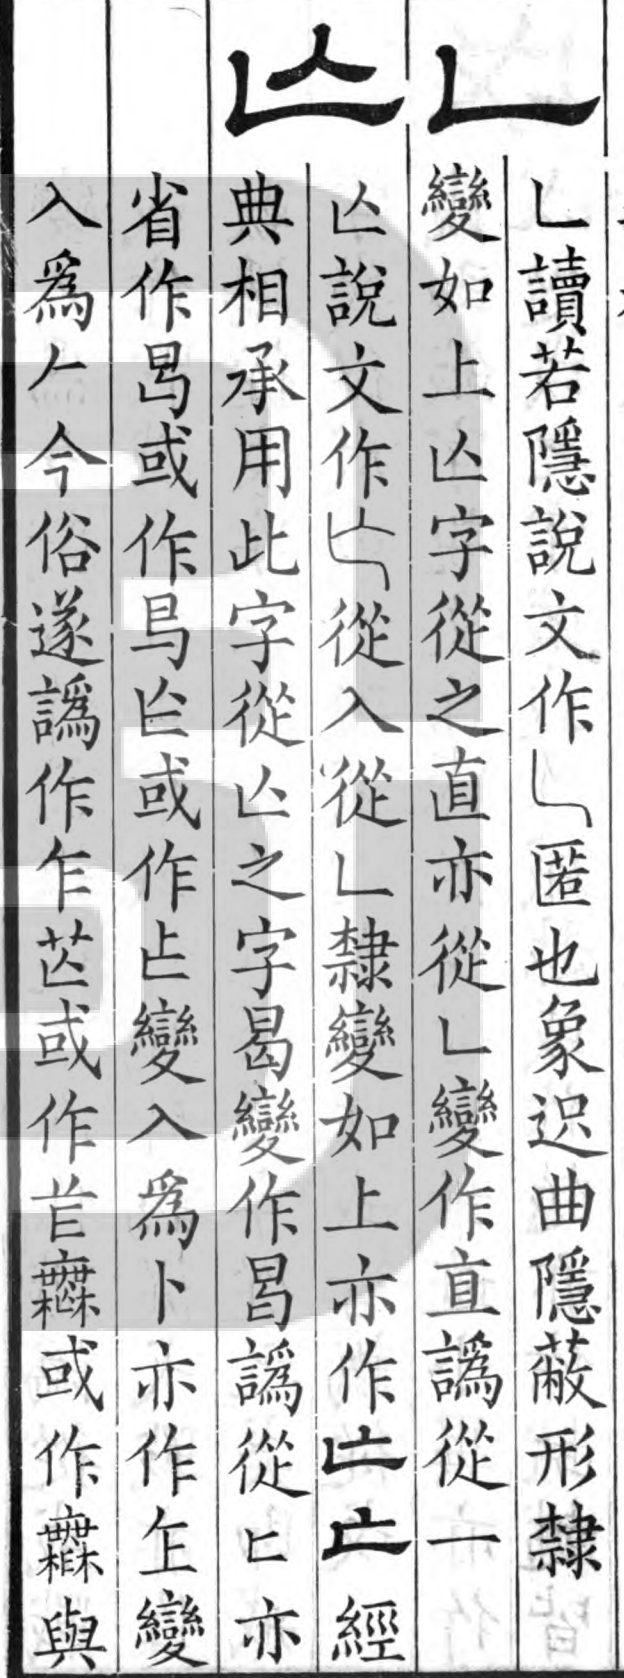 乚
乚讀若隱說文作乚匿也象迟曲隱蔽形隸
變如上亾字從之直亦從乚變作直譌從一
亾
亾說文作亾從入從乚隸變如上亦作亡經
典相承用此字從亾之字曷變作曷譌從匕亦
省作或作或作變入爲卜亦作變
入爲𠂉今俗遂譌作乍或作或作與